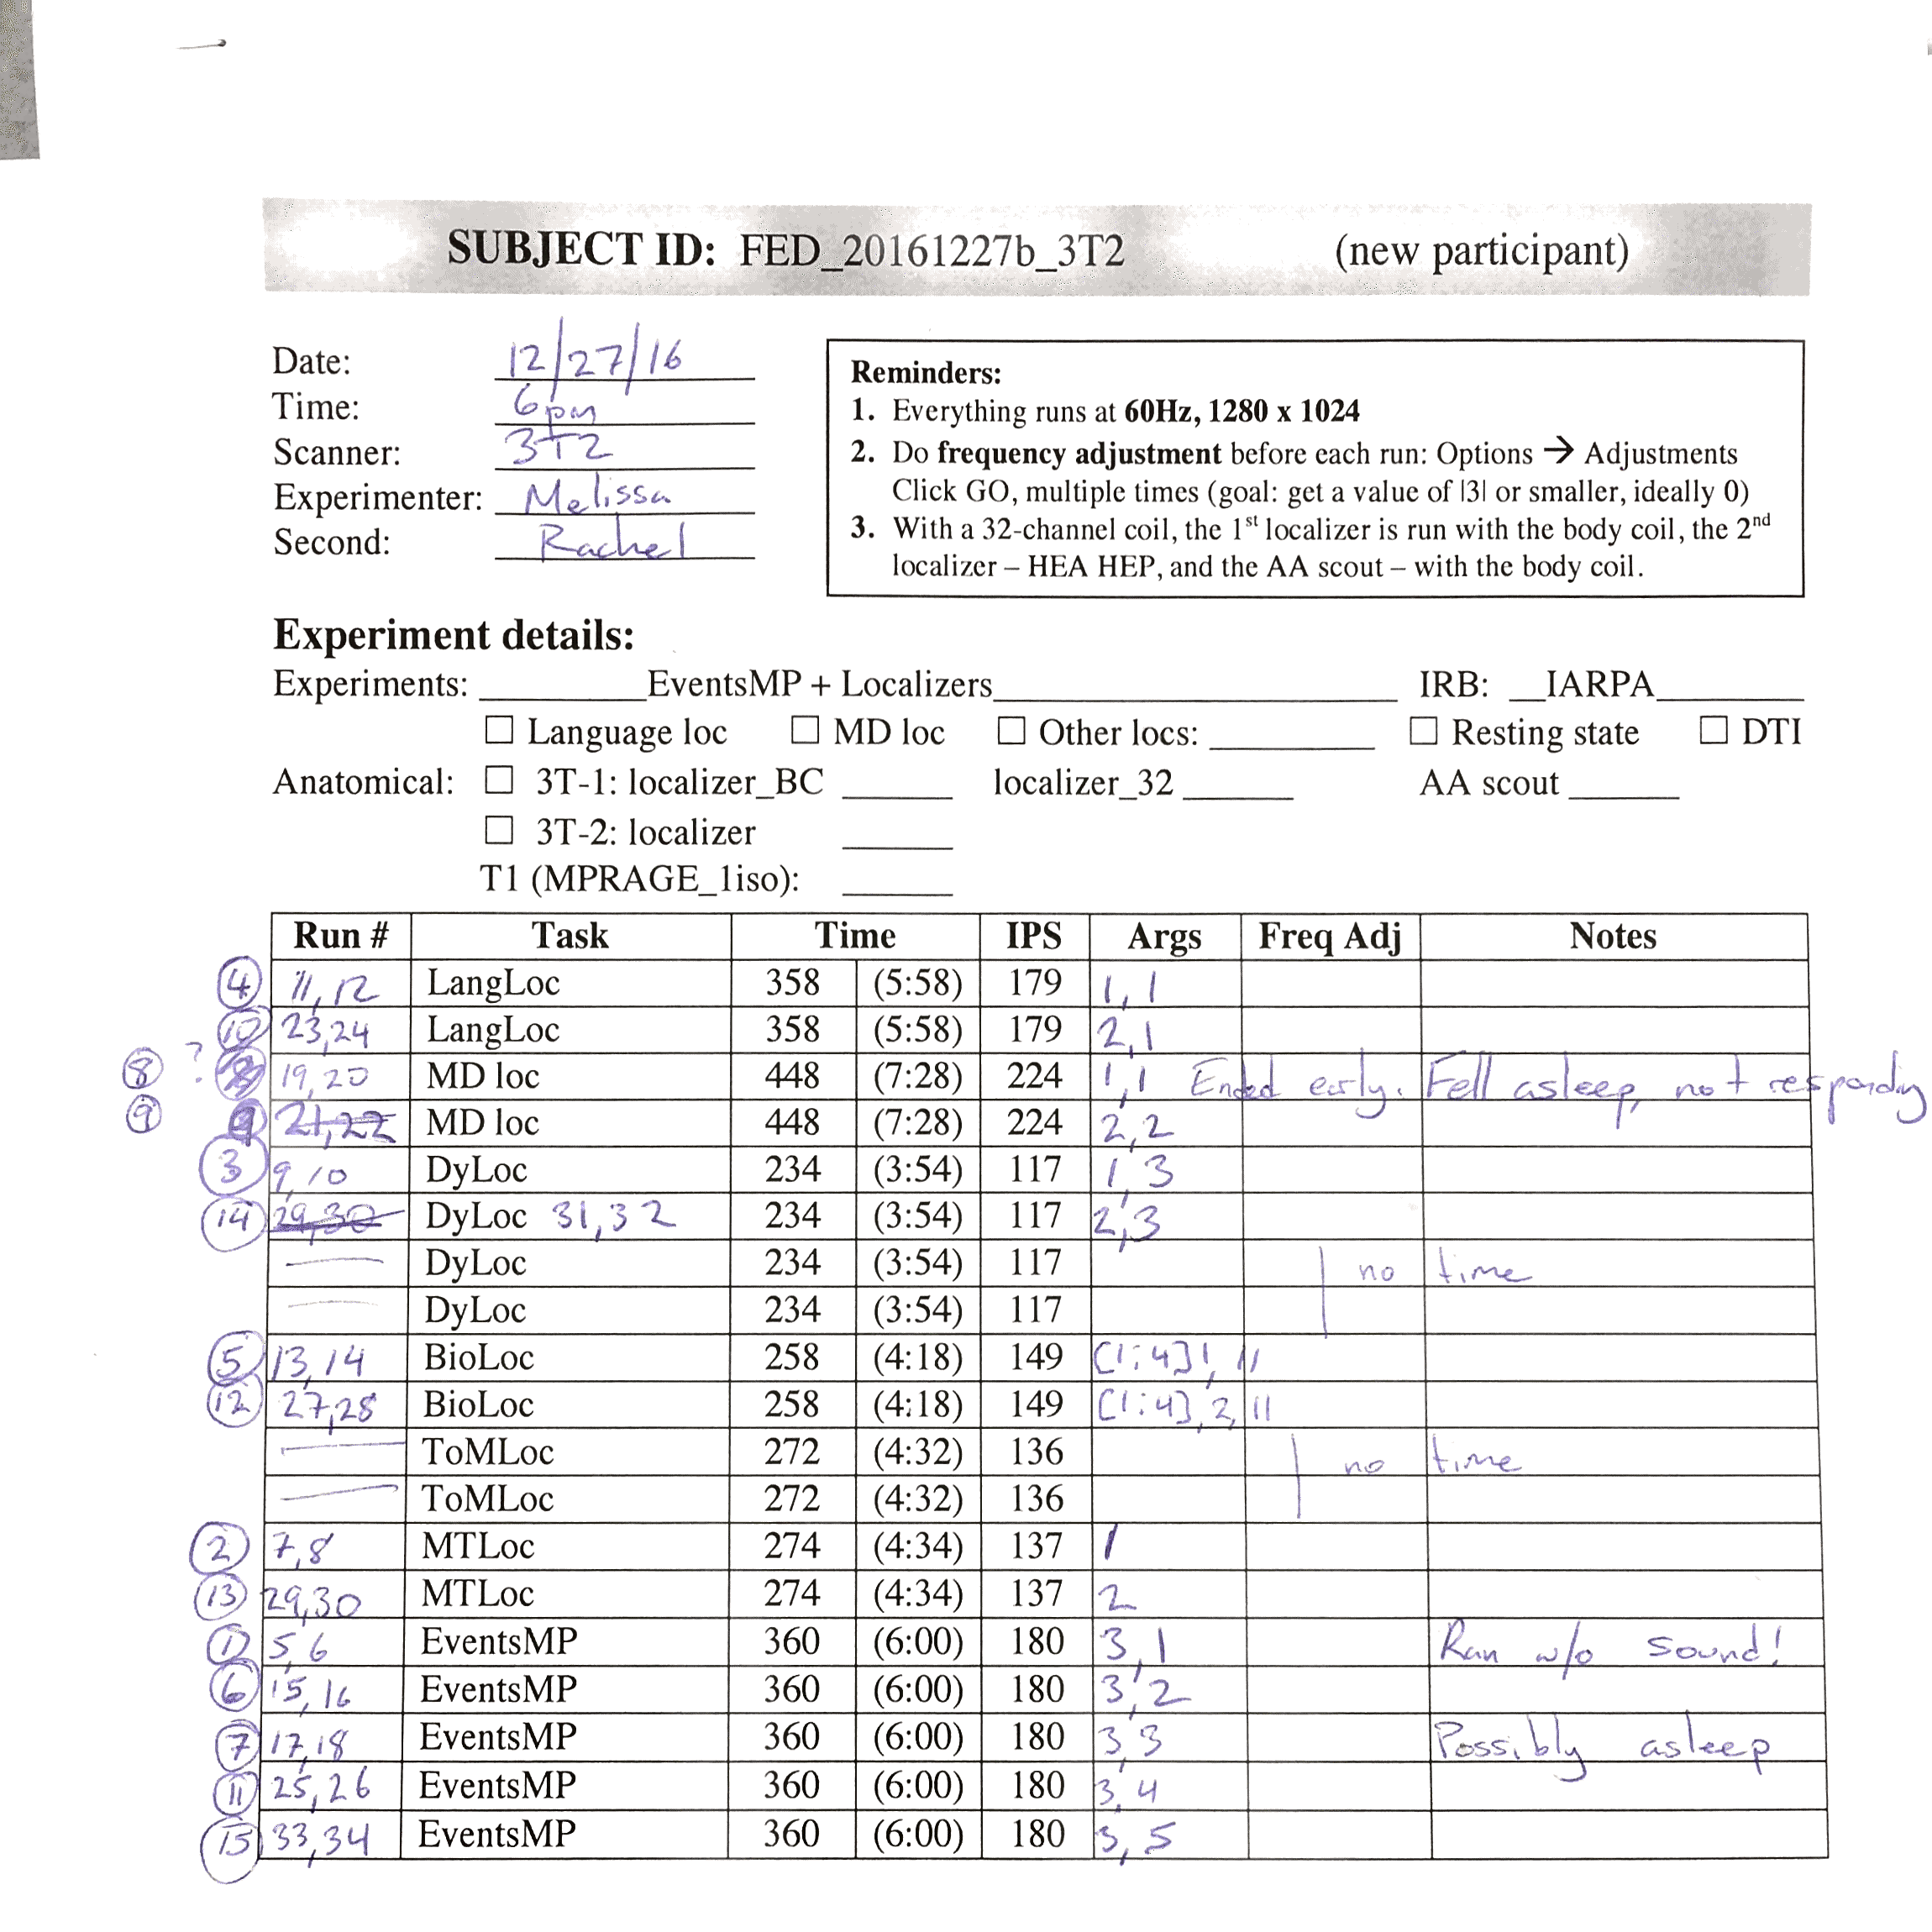 SUBJECT ID: FED_20161227b_3T2 (new participant)
Date: 12/27/16
Time: 6pm
Scanner: 3T2
Experimenter: Melissa
Second: Rachel
Reminders:
1. Everything runs at 60Hz, 1280 x 1024
2. Do frequency adjustment before each run: Options → Adjustments
Click GO, multiple times (goal: get a value of |3| or smaller, ideally 0)
3. With a 32-channel coil, the 1st localizer is run with the body coil, the 2nd
localizer – HEA HEP, and the AA scout – with the body coil.
Experiment details:
Experiments: EventsMP + Localizers IRB: IARPA
☐ Language loc ☐ MD loc ☐ Other locs: ☐ Resting state ☐ DTI
Anatomical: ☐ 3T-1: localizer_BC localizer_32 AA scout
☐ 3T-2: localizer
T1 (MPRAGE_1iso):
Run # Task Time IPS Args Freq Adj Notes
4 11,12 LangLoc 358 (5:58) 179 1,1
10 23,24 LangLoc 358 (5:58) 179 2,1
8 ? 19,20 MD loc 448 (7:28) 224 1,1 Ended early. Fell asleep, not responding
9 21,22 MD loc 448 (7:28) 224 2,2
3 9,10 DyLoc 234 (3:54) 117 1,3
14 29,30 DyLoc 31,32 234 (3:54) 117 2,3
— DyLoc 234 (3:54) 117 no time
— DyLoc 234 (3:54) 117
5 13,14 BioLoc 258 (4:18) 149 [1:4]1,11
12 27,28 BioLoc 258 (4:18) 149 [1:4],2,11
— ToMLoc 272 (4:32) 136 no time
— ToMLoc 272 (4:32) 136
2 7,8 MTLoc 274 (4:34) 137 1
13 29,30 MTLoc 274 (4:34) 137 2
1 5,6 EventsMP 360 (6:00) 180 3,1 Ran w/o sound!
6 15,16 EventsMP 360 (6:00) 180 3,2
7 17,18 EventsMP 360 (6:00) 180 3,3 Possibly asleep
11 25,26 EventsMP 360 (6:00) 180 3,4
15 33,34 EventsMP 360 (6:00) 180 3,5